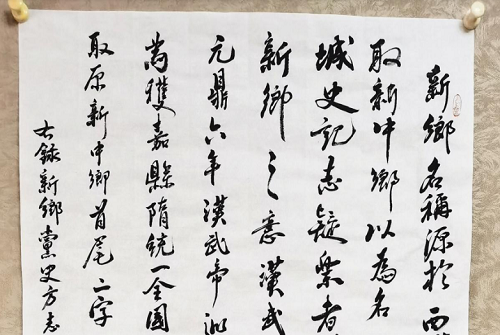 新鄉名稱源於西
取新中鄉以為名
城史記志疑樂者
新鄉之意漢武
元鼎六年漢武帝
為獲嘉縣隋統一全國
取原新中鄉首尾二字
右錄新鄉黨史方志